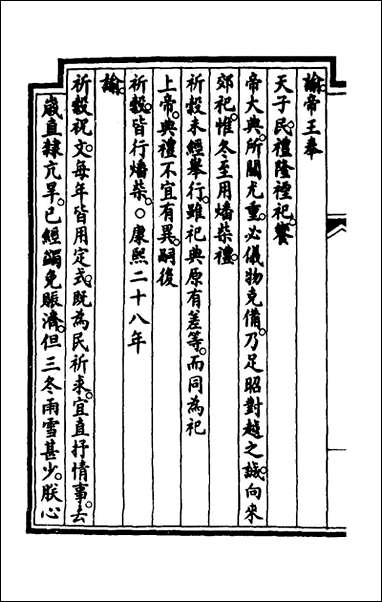 諭帝王奉
天子民禮隆禋祀饗
帝大典所關尤重必儀物克備乃足昭對越之誠向來
郊祀惟冬至用燔柴禮
祈穀未經舉行雖祀典原有差等而同為祀
上帝典禮不宜有異嗣後
祈穀皆行燔柴○康熙二十八年
諭
祈穀祝文每年皆用定式既為民祈求宜直抒情事去
歲直隸亢旱已經蠲免賑濟但三冬雨雪甚少朕心